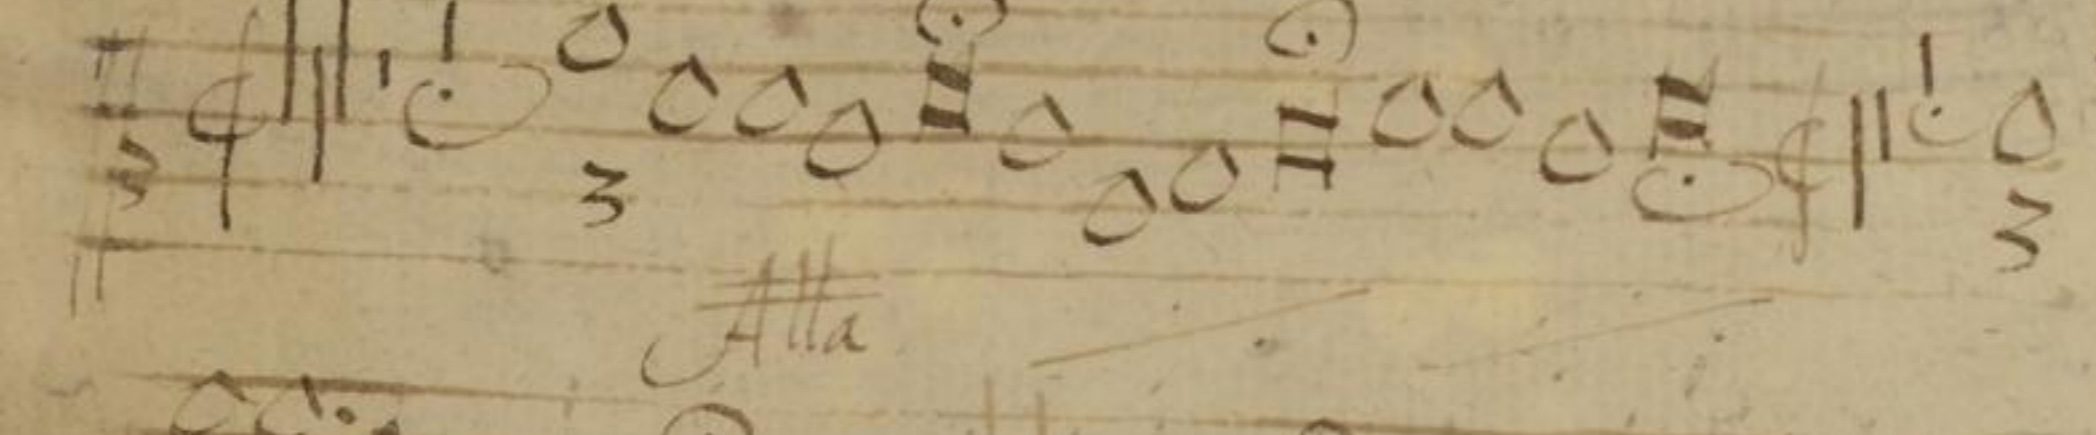 3 3 3
Alla